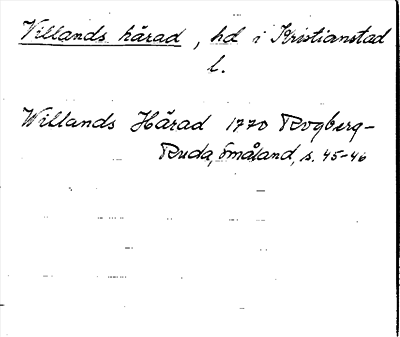 Villands härad, hd i Kristianstad
l.
Willands Härad 1770 Rogberg-
Ruda, Småland, s. 45-46